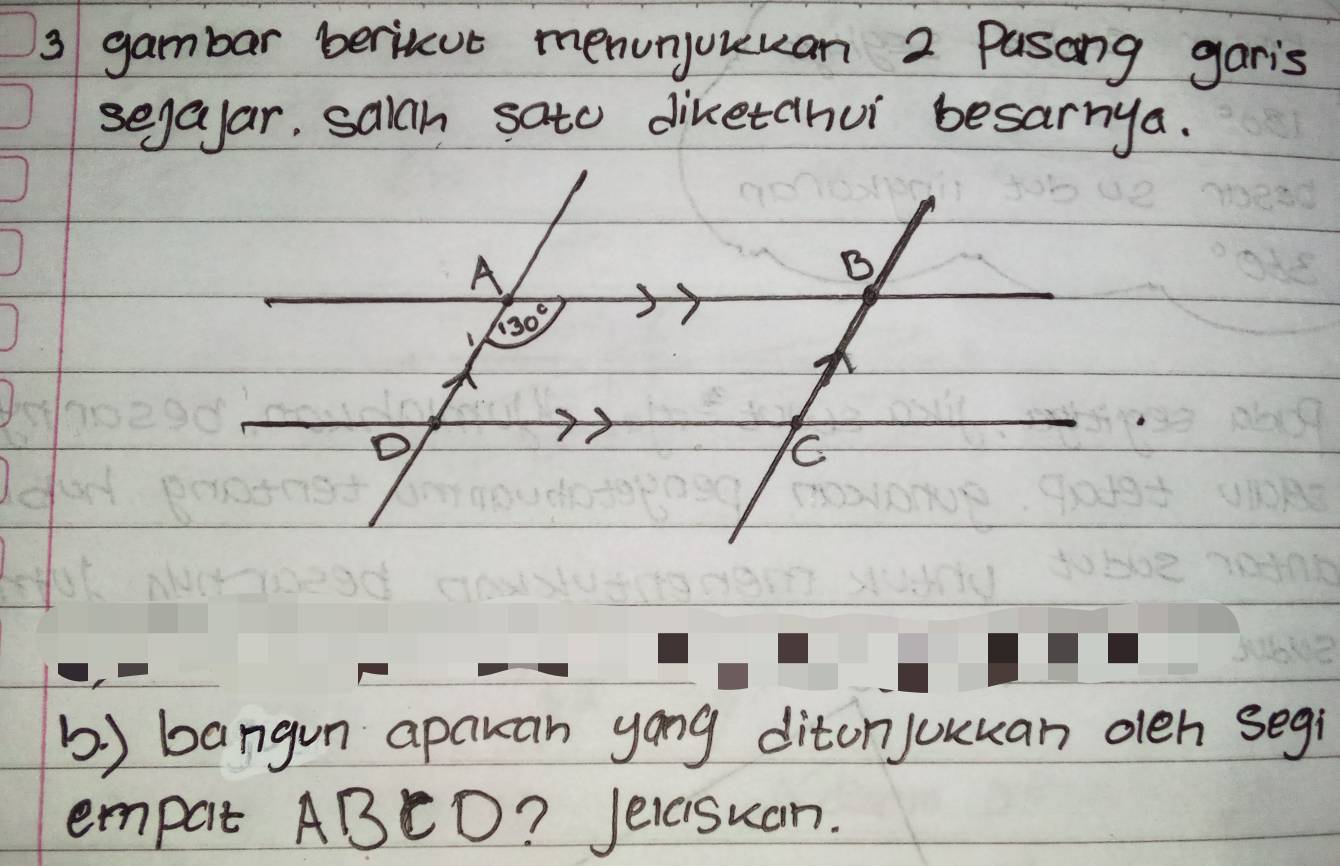 3 gambar berikut menunjukkan 2 Pasang garis
sejajar. salah satu diketahui besarnya.
A
B
130°
D
C
b.) bangun apakah yang ditunjukkan oleh segi
empat ABCD? Jelaskan.